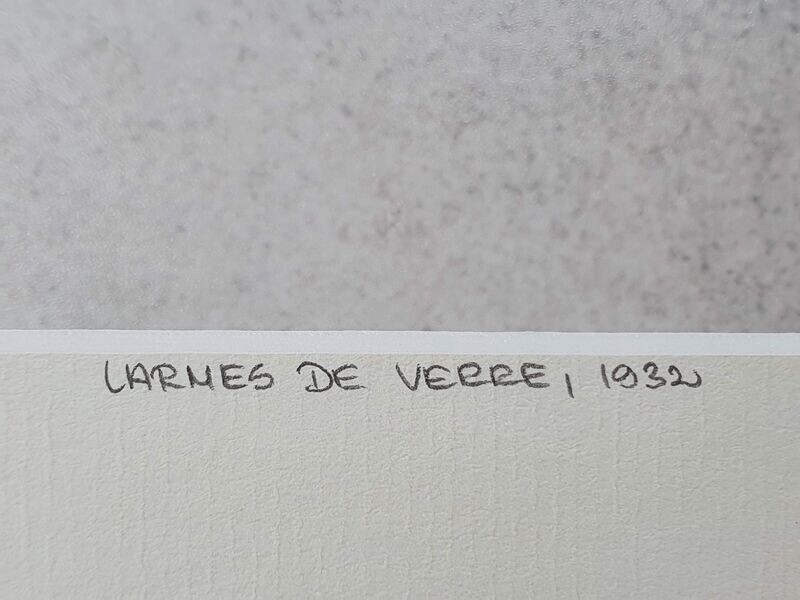 LARMES DE VERRE, 1932